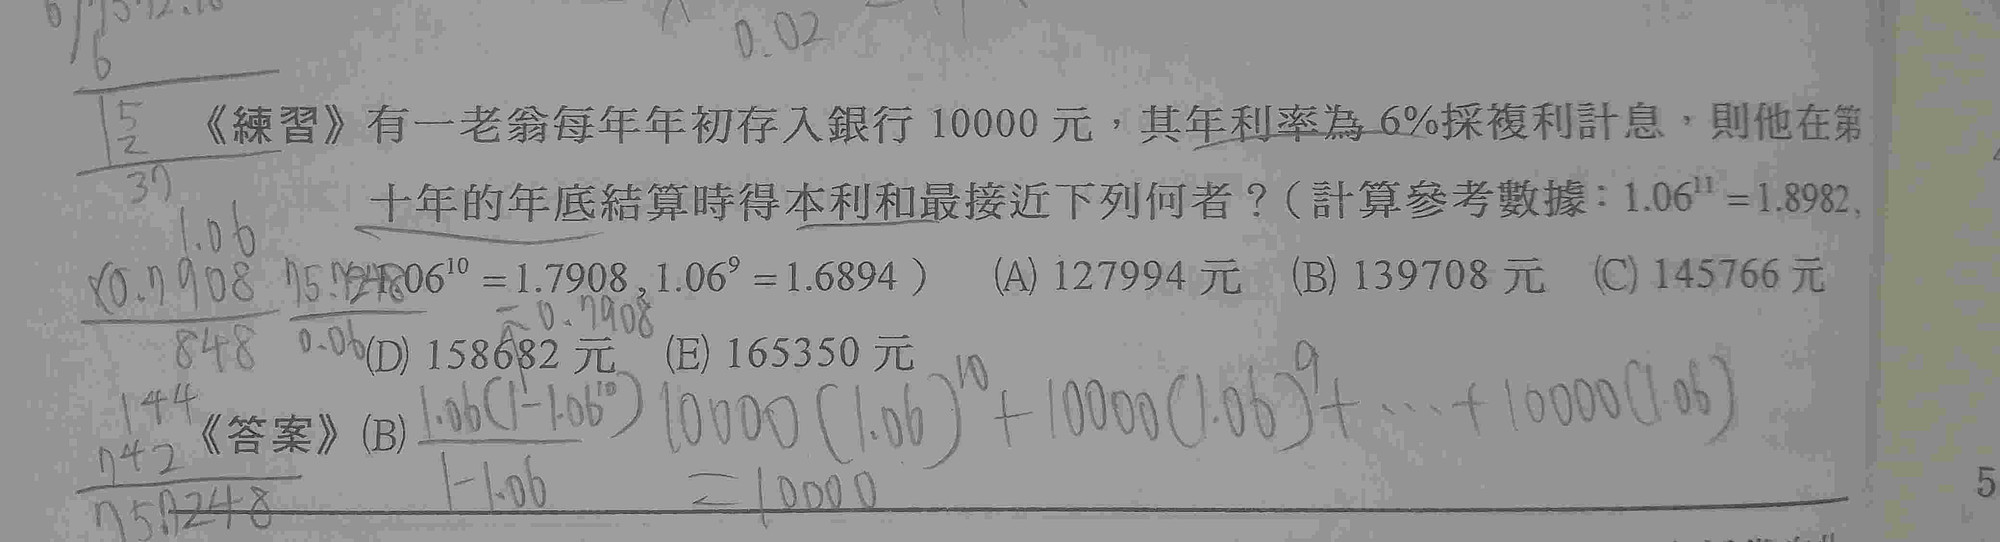 0.02
6
15
2
37
《練習》有一老翁每年年初存入銀行 10000 元，其年利率為 6%採複利計息，則他在第
十年的年底結算時得本利和最接近下列何者？（計算參考數據：1.06¹¹ =1.8982,
1.06
×0.7908
06¹⁰ =1.7908, 1.06⁹ =1.6894） (A) 127994 元 (B) 139708 元 (C) 145766 元
-0.7908
848
0.06
(D) 158682 元 (E) 165350 元
144
《答案》(B)
1.06(1-1.06¹⁰)
1-1.06
10000(1.06)¹⁰+10000(1.06)⁹+...+10000(1.06)
742
=10000
5